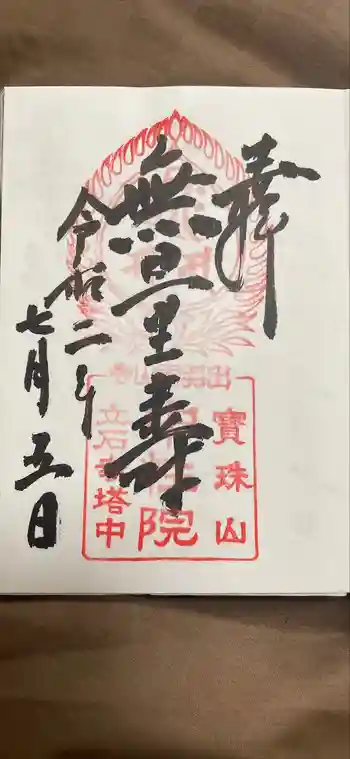 奉
無量壽
令和二年
七月五日
寶珠山
院
立石寺塔中